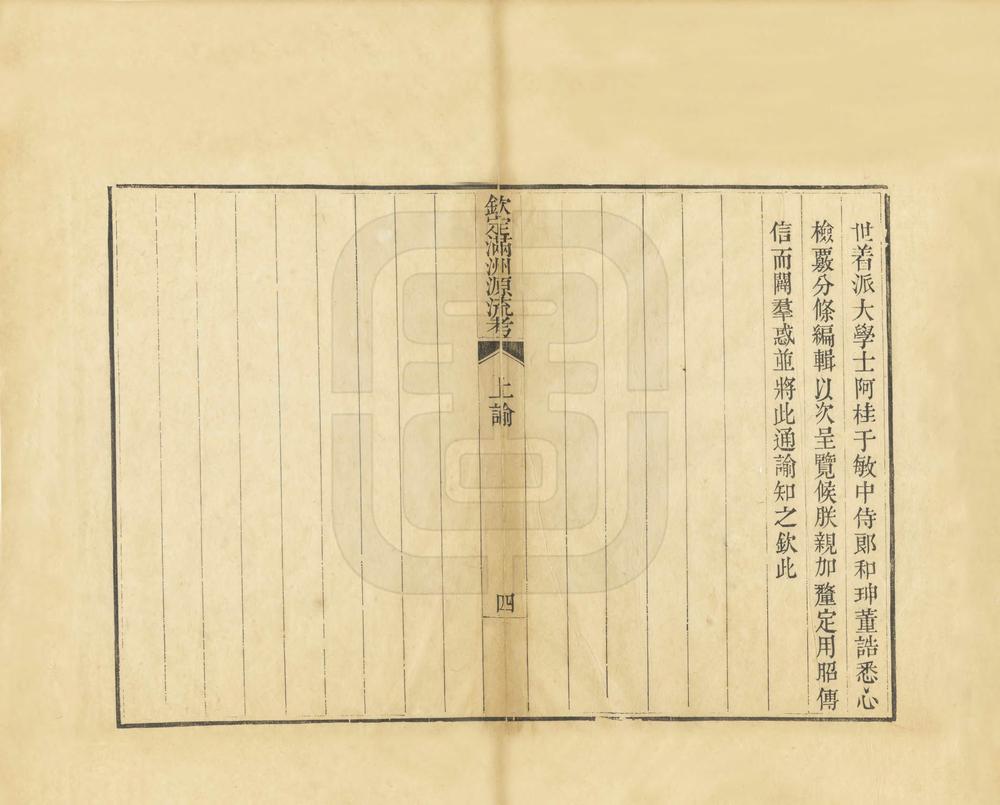 世着派大學士阿桂于敏中侍郞和珅董誥悉心
檢覈分條編輯以次呈覽候朕親加釐定用昭傳
信而闢羣惑並將此通諭知之欽此
欽定滿洲源流考
上諭
四